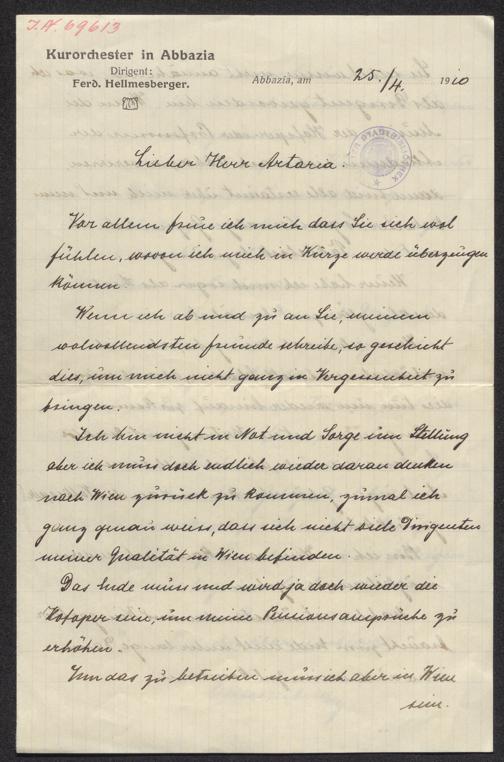 J.N. 69613
Kurorchester in Abbazia
Dirigent:
Ferd. Hellmesberger.
Abbazia, am 25./4. 1910
Lieber Herr Artaria.
Vor allem freue ich mich dass Sie sich wol
fühlen, wovon ich mich in Kürze werde überzeugen
können
Wenn ich ab und zu an Sie, meinem
wolwollendsten freunde schreibe, so geschieht
dies, um mich nicht ganz in Vergessenheit zu
bringen.
Ich bin nicht in Not und Sorge um Stellung
aber ich muss doch endlich wieder daran denken
nach Wien zurück zu kommen, zumal ich
ganz genau weiss, dass sich nicht viele Dirigenten
meiner Qualität in Wien befinden.
Das Ende muss und wird ja doch wieder die
Hofoper sein, um meine Pensionsansprüche zu
erhöhen.
Um das zu betreiben muss ich aber in Wien
sein.